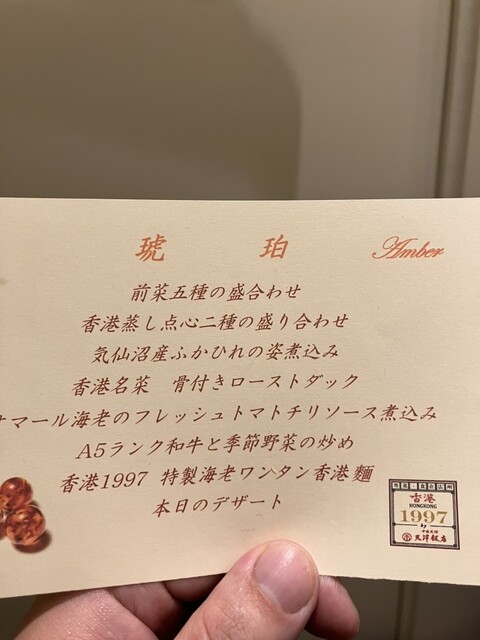 琥珀 Amber
前菜五種の盛合わせ
香港蒸し点心二種の盛り合わせ
気仙沼産ふかひれの姿煮込み
香港名菜 骨付きローストダック
マール海老のフレッシュトマトチリソース煮込み
A5ランク和牛と季節野菜の炒め
香港1997 特製海老ワンタン香港麺
本日のデザート
香港
HONGKONG
1997
by
天津飯店